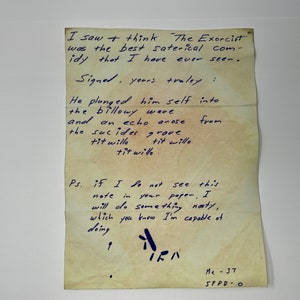 I saw + think The Exorcist
was the best saterical com-
idy that I have ever seen.
Signed, yours truley :
He plunged him self into
the billowy wave
and an echo arose from
the sucides grave
titwillo titwillo
titwillo
Ps. if I do not see this
note in your paper, I
will do something nasty,
which you know I'm capable of
doing
Me - 37
SFPD - 0